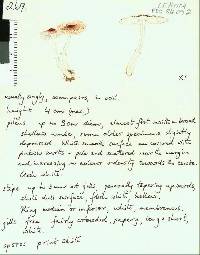 usually singly, some pairs, in soil.
height 4 cm (max.)
pileus up to 3cm diam, almost flat with a broad
shallow umbo, some older specimens slightly
depressed. White smooth surface covered with
pinkish 
pale and scattered near the margin
and increasing in colour density towards the centre.
flesh white
stipe up to 3mm at gills, generally tapering upwards,
chalk dull surface, flesh white, hollow.
Ring median or inferior, white, membranous.
gills free fairly crowded, papery, long & short,
White.
spores print white
x1